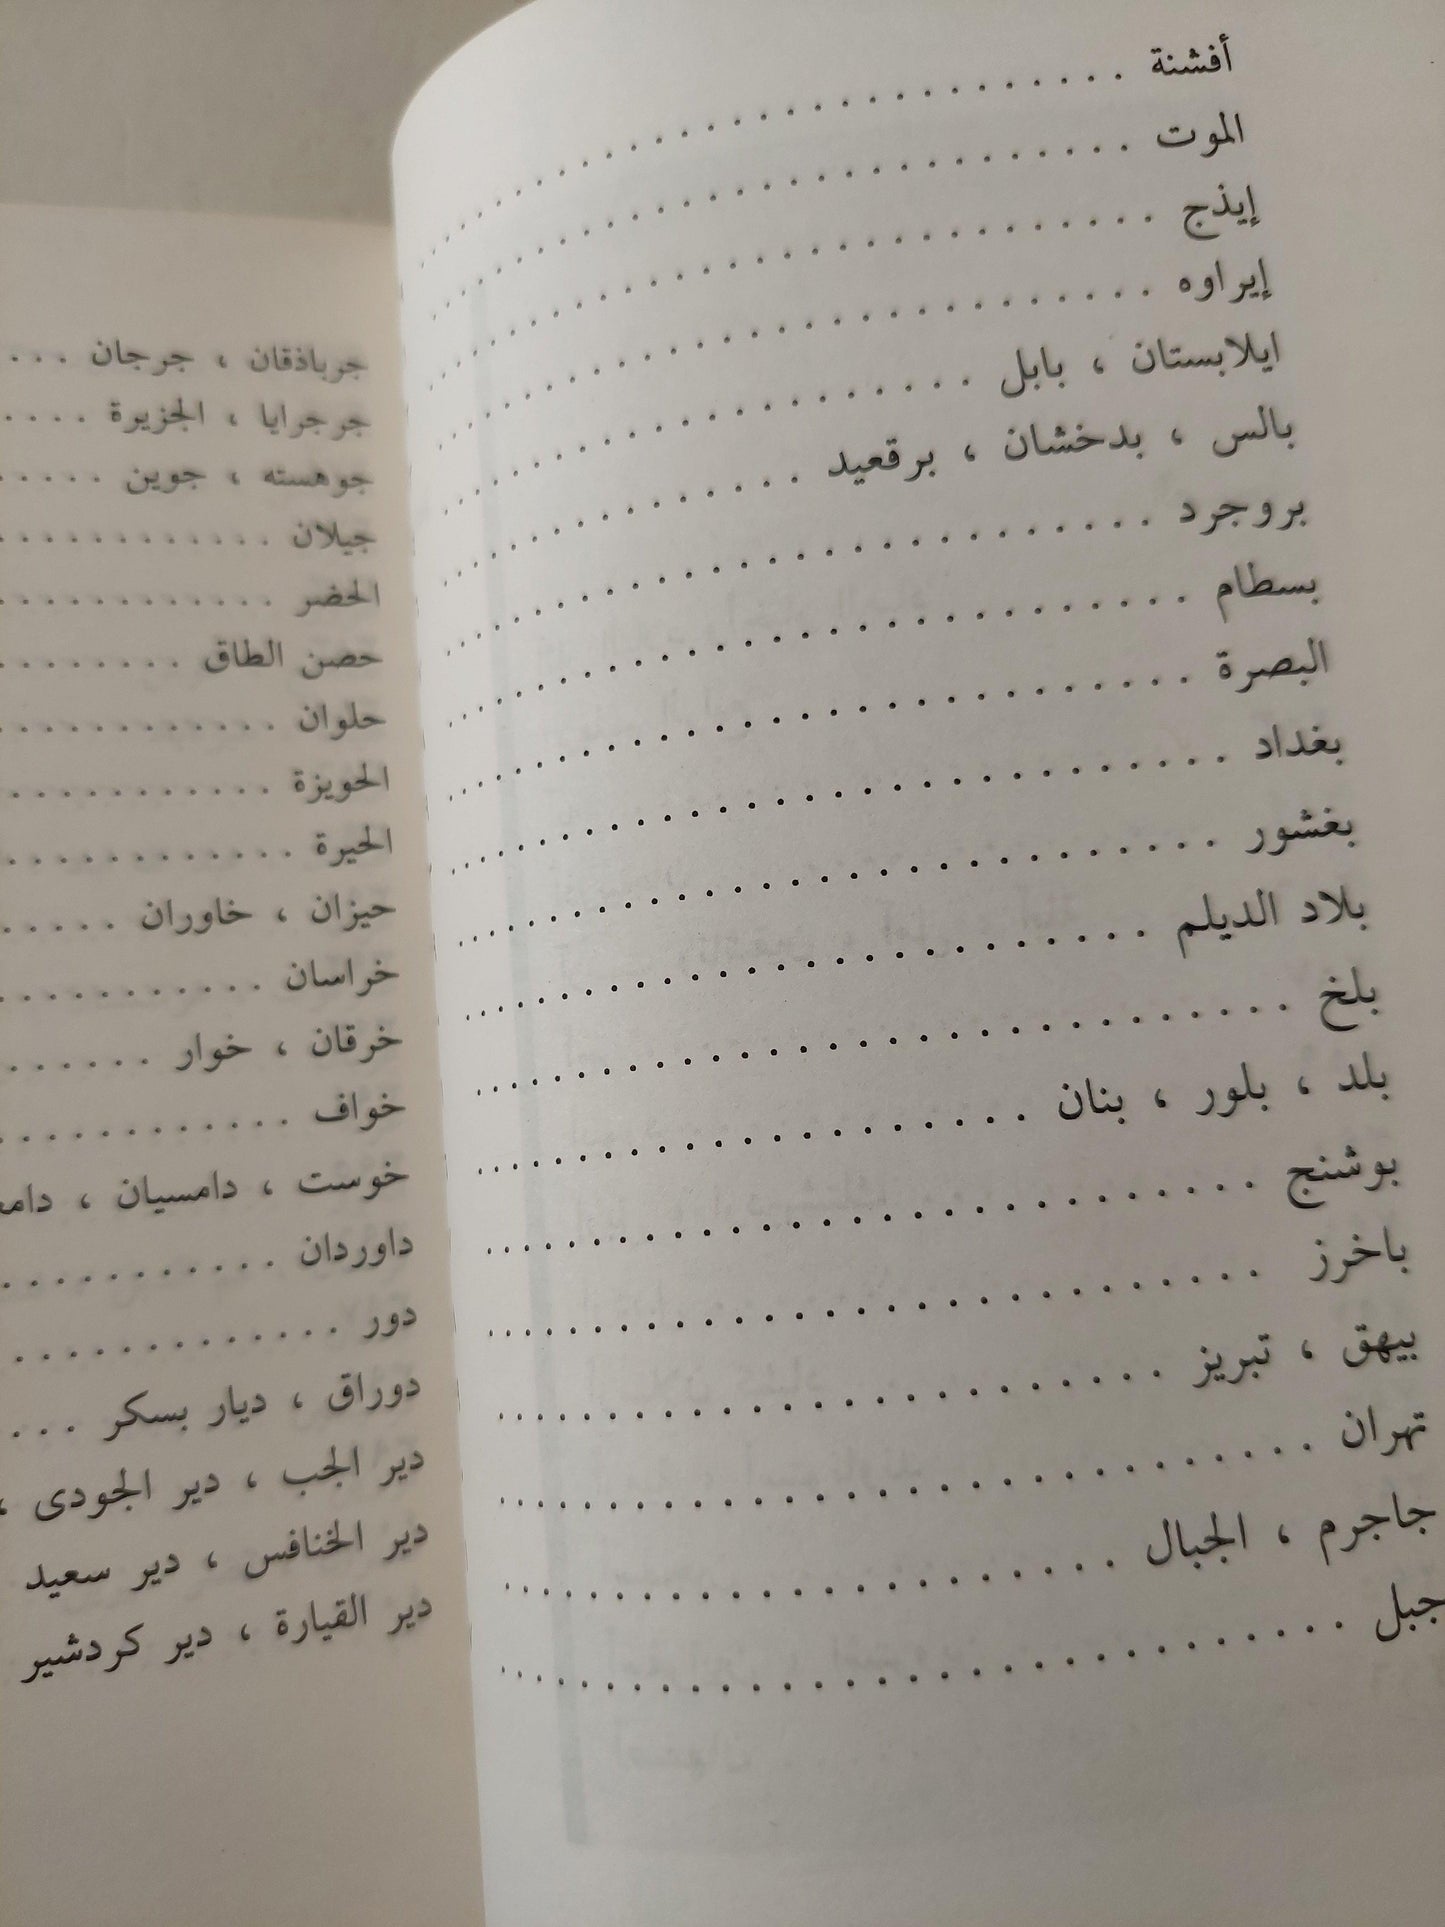 أفشنة . . . . . . . . . . . . . . . . . . . .
الموت . . . . . . . . . . . . . . . . . . . .
إيذج . . . . . . . . . . . . . . . . . . . .
إيراوه . . . . . . . . . . . . . . . . . . . .
ايلابستان ، بابل . . . . . . . . . . . . . . .
بالس ، بدخشان ، برقعيد . . . . . . . . . . . .
بروجرد . . . . . . . . . . . . . . . . . . . .
بسطام . . . . . . . . . . . . . . . . . . . .
البصرة . . . . . . . . . . . . . . . . . . . .
بغداد . . . . . . . . . . . . . . . . . . . .
بغشور . . . . . . . . . . . . . . . . . . . .
بلاد الديلم . . . . . . . . . . . . . . . . . .
بلخ . . . . . . . . . . . . . . . . . . . .
بلد ، بلور ، بنان . . . . . . . . . . . . . . .
بوشنج . . . . . . . . . . . . . . . . . . . .
باخرز . . . . . . . . . . . . . . . . . . . .
بيهق ، تبريز . . . . . . . . . . . . . . . . .
تهران . . . . . . . . . . . . . . . . . . . .
جاجرم ، الجبال . . . . . . . . . . . . . . . .
جبل . . . . . . . . . . . . . . . . . . . .
جرباذقان ، جرجان . . .
جرجرايا ، الجزيرة . . . .
جوهسته ، جوين . . . . .
جيلان . . . . . . . . . . .
الحضر . . . . . . . . . . .
حصن الطاق . . . . . . . .
حلوان . . . . . . . . . . .
الحويزة . . . . . . . . . . .
الحيرة . . . . . . . . . . . .
حيزان ، خاوران . . . . . .
خراسان . . . . . . . . . . .
خرقان ، خوار . . . . . .
خواف . . . . . . . . . . . .
خوست ، دامسيان ،
داوردان . . . . . . . . . . .
دور . . . . . . . . . . . . .
دوراق ، ديار بسكر . . .
دير الجب ، دير الجودى ،
دير الخنافس ، دير سعيد
دير القيارة ، دير كردشير